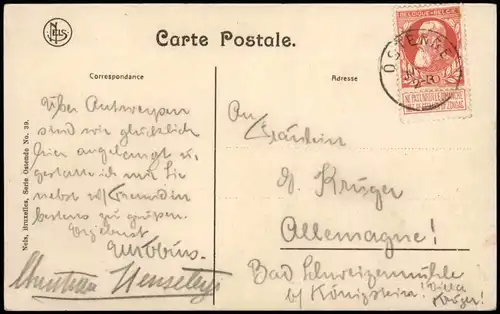 Nels
Carte Postale.
BELGIQUE-BELGIË
OSTENDE
Correspondance
Adresse
Nels, Bruxelles, Serie Ostende No. 39.
NE PAS LIVRER LE DIMANCHE
NIET BESTELLEN OP ZONDAG
Über Antwerpen
sind wir glücklich
hier angelangt u.
gestatte ich mir Sie
nebst Freundin
bestens zu grüßen.
Ergebenst
An
Fräulein
Krüger
Allemagne!
Bad Schweizermühle
b/ Königstein! Villa
Krüger!